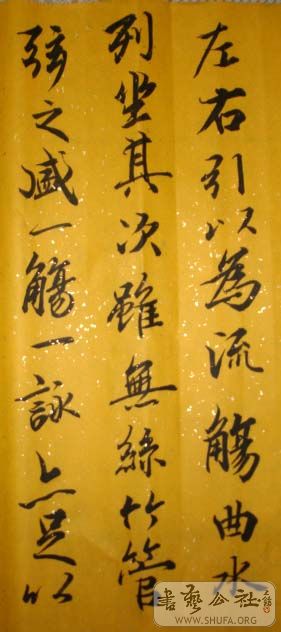 左右引以為流觴曲水
列坐其次雖無絲竹管
弦之盛一觴一詠亦足以
書藝公社
WWW.SHUFA.ORG